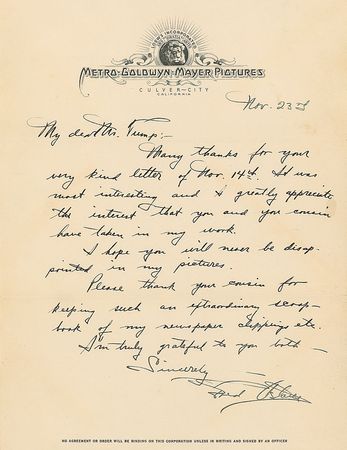 METRO-GOLDWYN-MAYER PICTURES
CULVER-CITY
CALIFORNIA
Nov. 23rd
My dear Mr. Trump:-
Many thanks for your
very kind letter of Nov. 14th. It was
most interesting and I greatly appreciate
the interest that you and your cousin
have taken in my work.
I hope you will never be disap-
pointed in my pictures.
Please thank your cousin for
keeping such an extraordinary scrap-
book of my newspaper clippings etc.
I'm truly grateful to you both –
Sincerely
NO AGREEMENT OR ORDER WILL BE BINDING ON THIS CORPORATION UNLESS IN WRITING AND SIGNED BY AN OFFICER